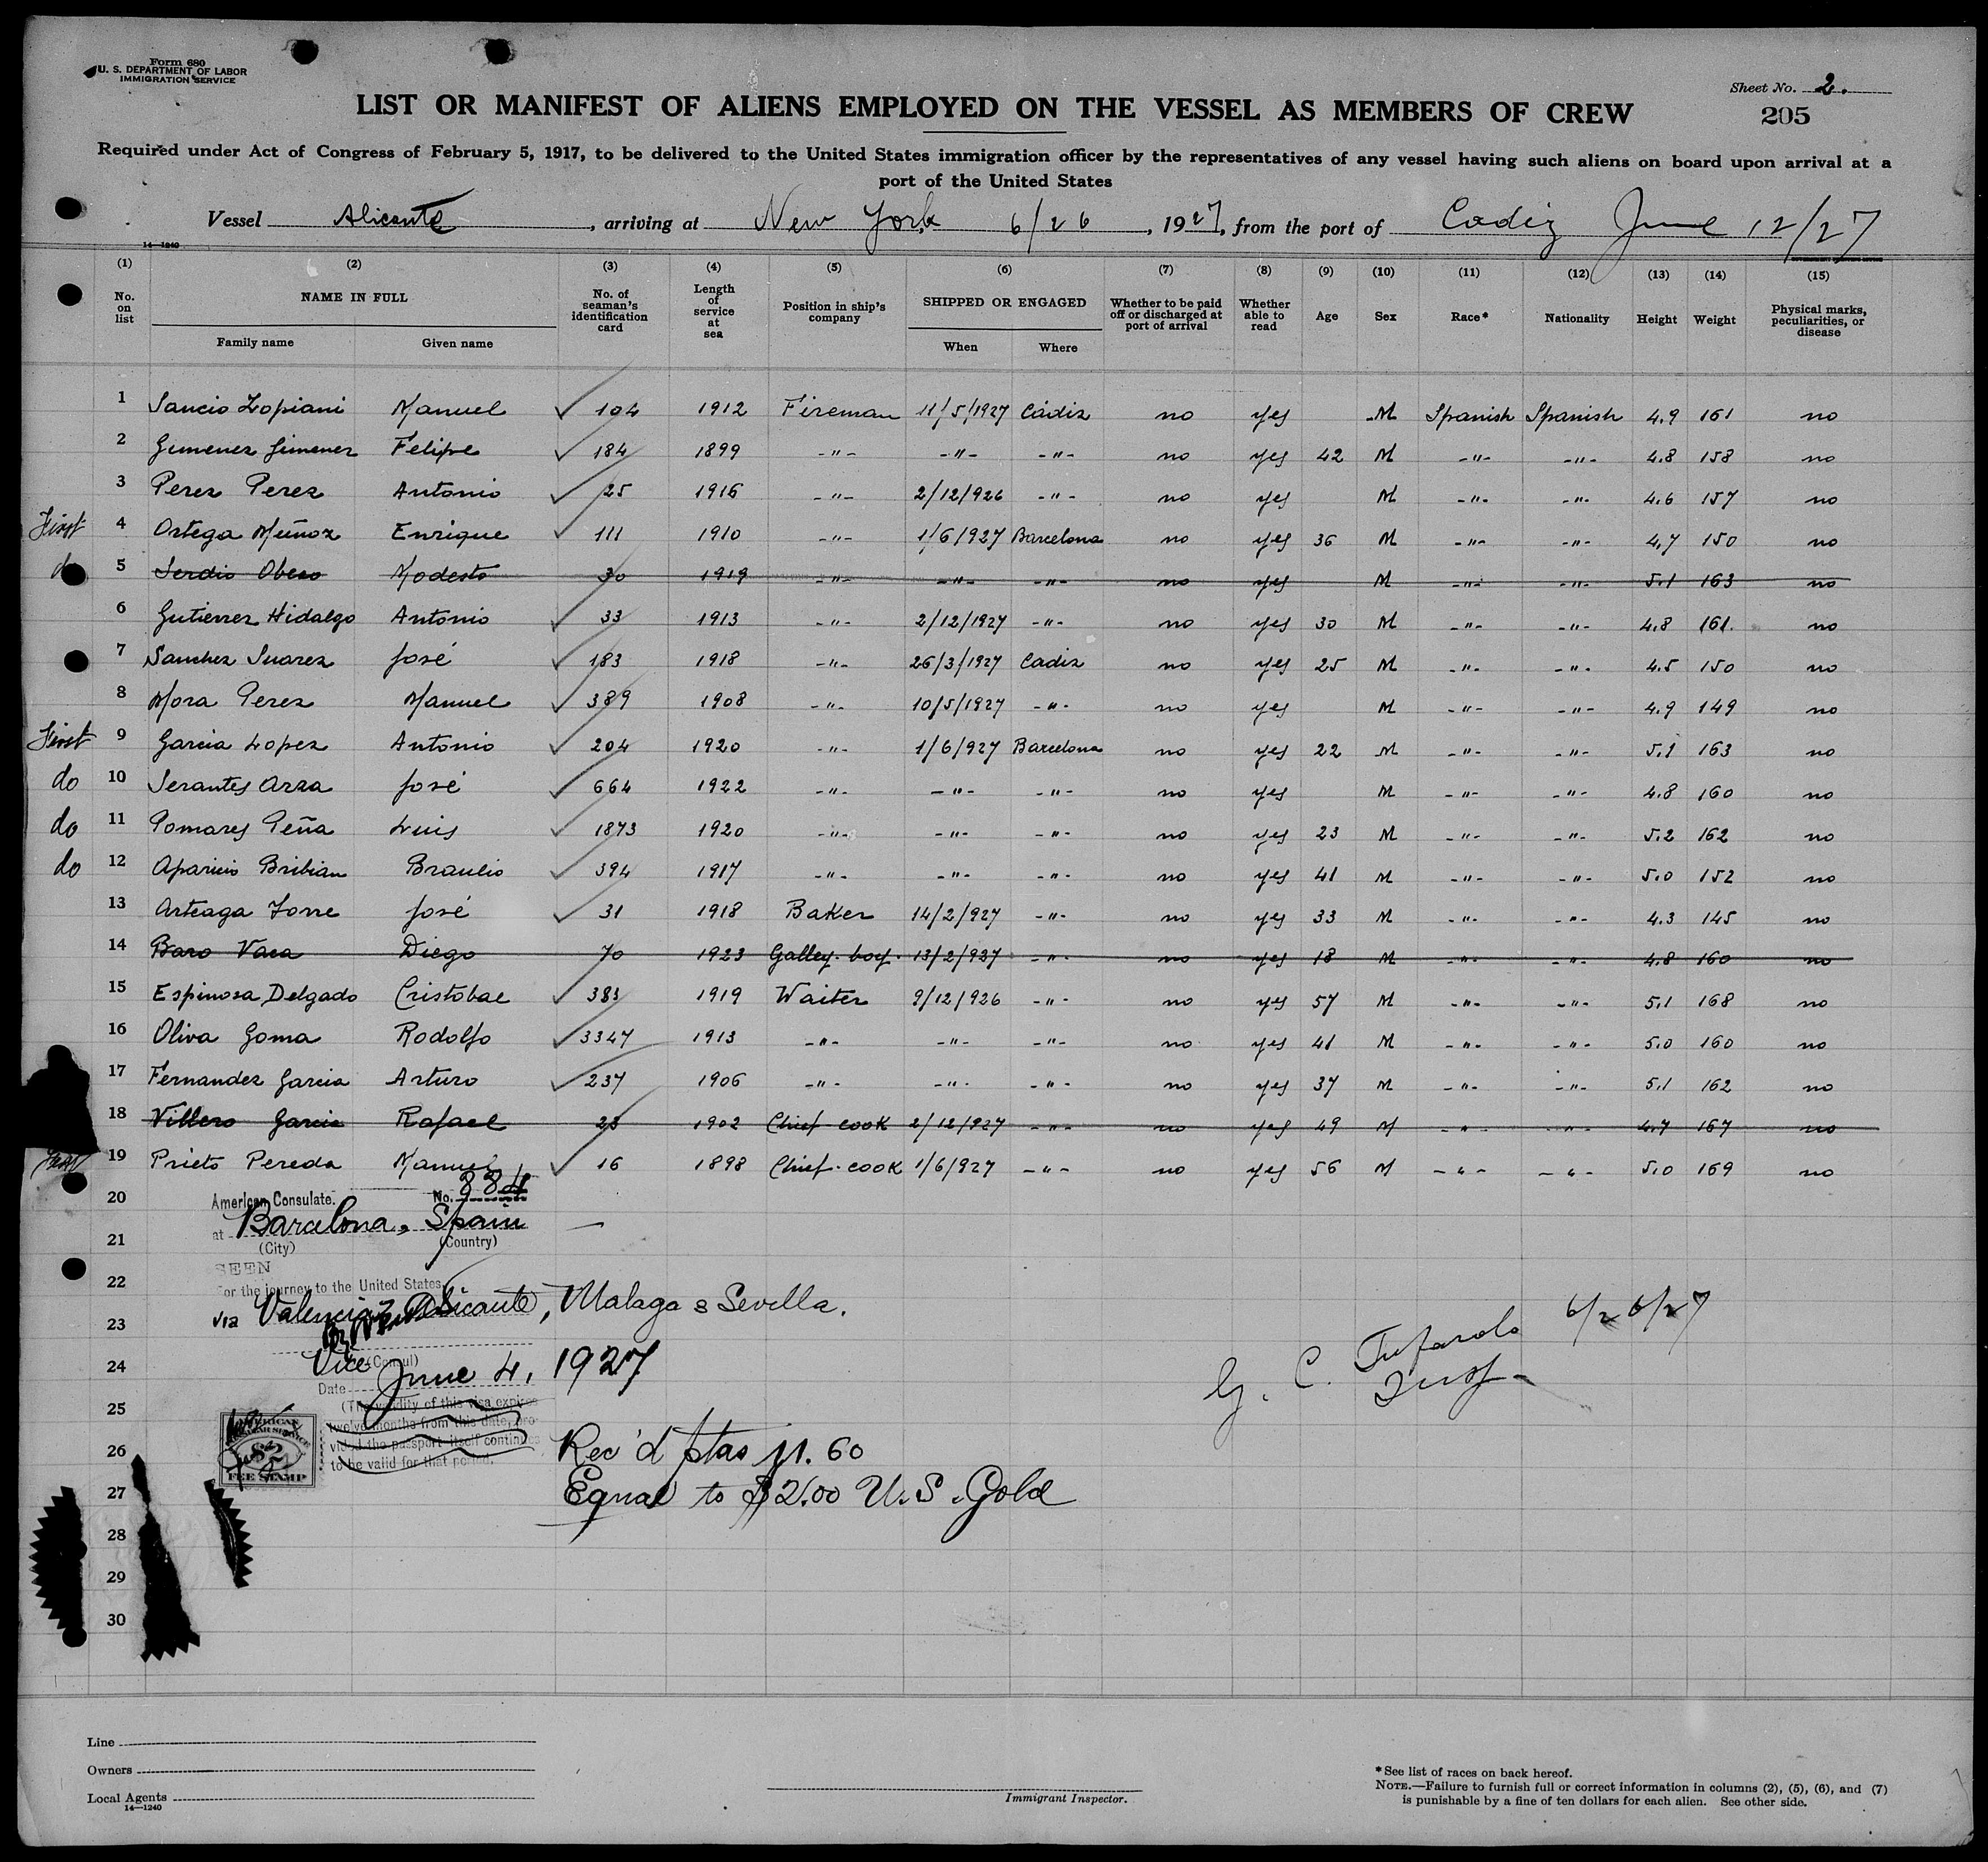 Form 680
U. S. DEPARTMENT OF LABOR
IMMIGRATION SERVICE
Sheet No. 2.
205
LIST OR MANIFEST OF ALIENS EMPLOYED ON THE VESSEL AS MEMBERS OF CREW
Required under Act of Congress of February 5, 1917, to be delivered to the United States immigration officer by the representatives of any vessel having such aliens on board upon arrival at a
port of the United States
Vessel Alicante, arriving at New York 6/26, 1927, from the port of Cadiz June 12/27
14—1240
(1) (2) (3) (4) (5) (6) (7) (8) (9) (10) (11) (12) (13) (14) (15)
No. on list NAME IN FULL Family name Given name No. of seaman's identification card Length of service at sea Position in ship's company SHIPPED OR ENGAGED When Where Whether to be paid off or discharged at port of arrival Whether able to read Age Sex Race* Nationality Height Weight Physical marks, peculiarities, or disease
1 Sancio Lopiani Manuel 104 1912 Fireman 11/5/1927 Cádiz no yes M Spanish Spanish 4.9 161 no
2 Gimenez Jimenez Felipe 184 1899 -"- -"- -"- no yes 42 M -"- -"- 4.8 158 no
3 Perez Perez Antonio 25 1916 -"- 2/12/926 -"- no yes M -"- -"- 4.6 157 no
First 4 Ortega Muñoz Enrique 111 1910 -"- 1/6/927 Barcelona no yes 36 M -"- -"- 4.7 150 no
do 5 Serdio Obeso Modesto 30 1919 -"- -"- -"- no yes M -"- -"- 5.1 163 no
6 Gutierrez Hidalgo Antonio 33 1913 -"- 2/12/1927 -"- no yes 30 M -"- -"- 4.8 161 no
7 Sanchez Suarez José 183 1918 -"- 26/3/1927 Cadiz no yes 25 M -"- -"- 4.5 150 no
8 Mora Perez Manuel 389 1908 -"- 10/5/1927 -"- no yes M -"- -"- 4.9 149 no
First 9 Garcia Lopez Antonio 204 1920 -"- 1/6/927 Barcelona no yes 22 M -"- -"- 5.1 163 no
do 10 Serantes Arza José 664 1922 -"- -"- -"- no yes M -"- -"- 4.8 160 no
do 11 Pomares Peña Luis 1873 1920 -"- -"- -"- no yes 23 M -"- -"- 5.2 162 no
do 12 Aparicio Bribian Braulio 394 1917 -"- -"- -"- no yes 41 M -"- -"- 5.0 152 no
13 Arteaga Torre José 31 1918 Baker 14/2/927 -"- no yes 33 M -"- -"- 4.3 145 no
14 Baro Vaca Diego 70 1923 Galley-boy 13/2/927 -"- no yes 18 M -"- -"- 4.8 160 no
15 Espinosa Delgado Cristobal 383 1919 Waiter 9/12/926 -"- no yes 57 M -"- -"- 5.1 168 no
16 Oliva Goma Rodolfo 3347 1913 -"- -"- -"- no yes 41 M -"- -"- 5.0 160 no
17 Fernandez Garcia Arturo 237 1906 -"- -"- -"- no yes 37 M -"- -"- 5.1 162 no
18 Villero Garcia Rafael 23 1902 Chief-cook 2/12/927 -"- no yes 49 M -"- -"- 4.7 167 no
First 19 Prieto Pereda Manuel 16 1898 Chief-cook 1/6/927 -"- no yes 56 M -"- -"- 5.0 169 no
20
American Consulate. No. 884
at Barcelona, Spain
21
(City) (Country)
SEEN
22
For the journey to the United States
via Valencia, Alicante, Malaga & Sevilla.
23
6/26/27
Vice (Consul)
24
Date June 4, 1927
G. C. Tufarolo
Insp.
25
(The validity of this visa expires
twelve months from this date, pro-
vided the passport itself continues
to be valid for that period.
AMERICAN
$2
FEE STAMP
26
Rec'd ptas 11.60
27
Equal to $2.00 U.S. Gold
28
29
30
Line
Owners
Local Agents
14—1240
Immigrant Inspector.
* See list of races on back hereof.
NOTE.—Failure to furnish full or correct information in columns (2), (5), (6), and (7)
is punishable by a fine of ten dollars for each alien. See other side.